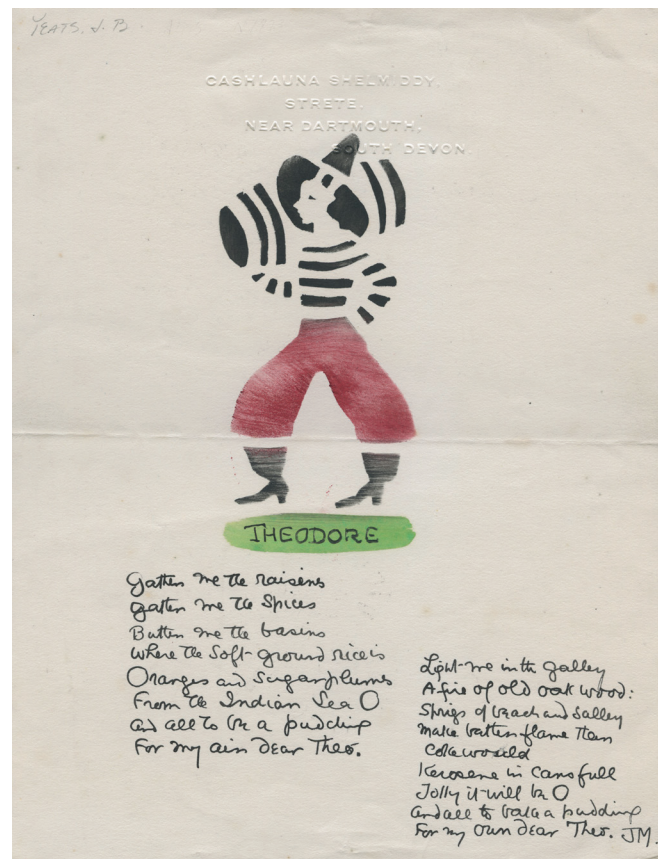 YEATS. J. B.
CASHLAUNA SHELMIDDY,
STRETE,
NEAR DARTMOUTH,
SOUTH DEVON.
THEODORE
Gather me the raisens
gather me the Spices
Butter me the basins
Where the Soft ground rice is
Oranges and Sugarplumes
From the Indian Sea O
And all to be a pudding
For my ain dear Theo.
Light me in the galley
A fire of old oak wood:
Sprigs of beach and Salley
Make better flame than
Coke would
Kerosene in cans full
Jolly it will be O
And all to bake a pudding
For my own dear Theo. JM.